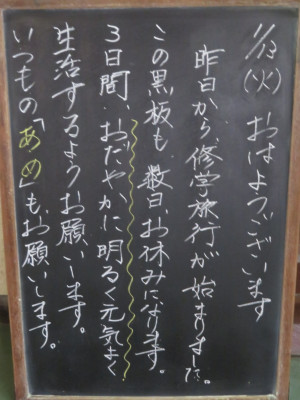 1/13(火) おはようございます
昨日から修学旅行が始まりました。
この黒板も数日、お休みになります。
3日間、おだやかに明るく元気よく
生活するようお願いします。
いつもの「あめ」も、お願いします。